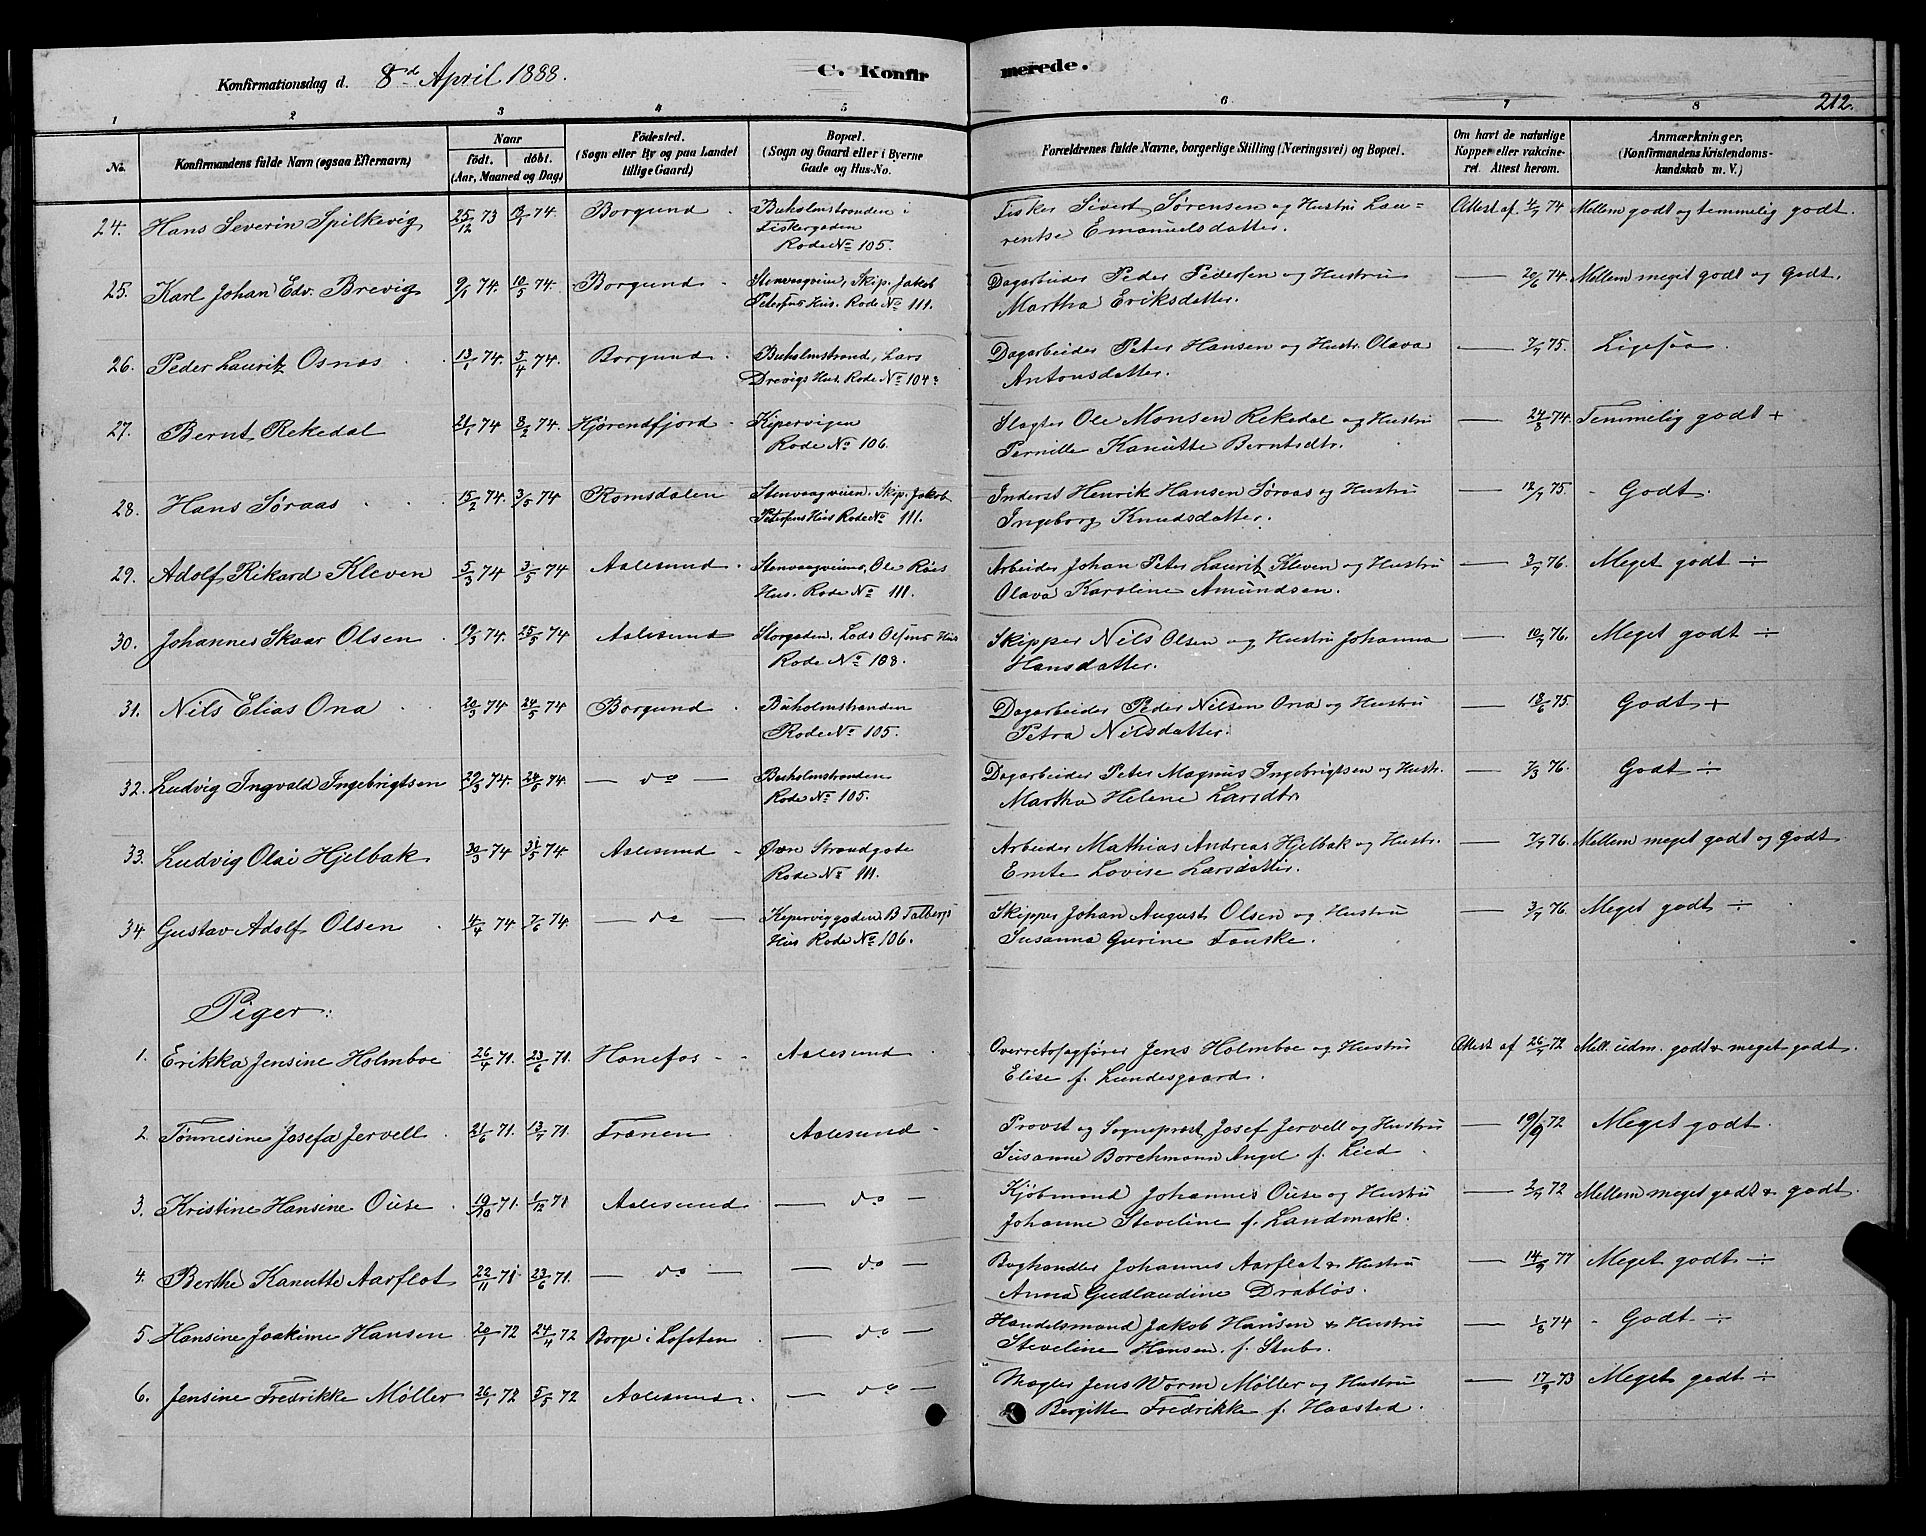 Konfirmationsdag d. 8d April 1888.
C. Konfirmerede.
212.
1 2 3 4 5 6 7 8
No.
Konfirmandens fulde Navn (ogsaa Efternavn)
Naar
født. døbt.
(Aar, Maaned og Dag)
Fødested.
(Sogn eller By og paa Landet
tillige Gaard)
Bopæl.
(Sogn og Gaard eller i Byerne
Gade og Hus-No.
Forældrenes fulde Navne, borgerlige Stilling (Næringsvei) og Bopæl.
Om havt de naturlige
Kopper eller vakcine-
ret. Attest herom.
Anmærkninger,
(Konfirmandens Kristendoms-
kundskab m. V.)
24. Hans Severin Spilkevig 25/12 73 74. Borgund Buholmstranden i Fisker Sivert Sørensen og Hustru Lau= Attest af 74 Mellem godt og temmelig godt.
Fiskergaden
Rode No 105. rentse Emanuelsdatter.
25. Karl Johan Edv. Brevig 9/1 74. 10/5 74. Borgund Stenvaagveien, Skip. Jakob Dagarbeider Peder Pedersen og Hustru — 20/6 74. Mellem meget godt og Godt.
Petersens Hus. Rode No 111. Martha Eriksdatter.
26. Peder Lauritz Osnas 13/1 74. 5/4 74. Borgund Buholmstrand, Lars Dagarbeider Peter Hansen og Hustr. Olava — 75. Ligesaa
Drevigs Hus. Rode No 104. Antonsdatter.
27. Bernt Rekedal 21/1 74 8/2 74. Hjørendfjord Kipervigen Slagter Ole Monsen Rekedal og Hustru — 74. Temmelig godt +
Rode No 106. Pernille Kanutte Berntsdtr.
28. Hans Søraas 15/2 74. 3/5 74 Romsdalen Stenvaagveien. Skip. Jakob Inderst Henrik Hansen Søraas og Hustru — 75. Godt.
Petersens Hus Rode No 111. Ingeborg Knudsdatter.
29. Adolf Rikard Kleven 5/3 74 3/5 74 Aalesund Stenvaagveiens, Ole Røes Arbeider Johan Peter Lauritz Kleven og Hustru — 3/7 76. Meget godt ÷
Hus. Rode No 111. Olava Karoline Amundsen.
30. Johannes Skaar Olsen 19/3 74. 25/5 74 Aalesund Storgaden, Lods Olsens Hus Skipper Nils Olsen og Hustru Johanna — 10/7 76. Meget godt ÷
Rode No 108. Hansdatter.
31. Nils Elias Ona 20/3 74 24/5 74 Borgund Buholmstranden Dagarbeider Peder Nilsen Ona og Hustru — 18/6 75. Godt +
Rode No 105. Petra Nilsdatter.
32. Ludvig Ingvald Ingebrigtsen 29/3 74. 24/5 74. — do — Buholmstranden Dagarbeider Peter Magnus Ingebrigtsen og Hustr. — 7/3 76. Godt ÷
Rode No 105. Martha Helene Larsdtr
33. Ludvig Olai Hjelbak 30/3 74 31/5 74. Aalesund Øvre Strandgade Arbeider Mathias Andreas Hjelbak og Hustr. — 7/7 76. Mellem meget godt og Godt
Rode No 111. Emte Lovise Larsdatter.
34 Gustav Adolf Olsen 4/4 74 7/6 74. — do — Kiperviggaden B Talbergs Skipper Johan August Olsen og Hustru — 3/7 76. Meget godt ÷
Hus Rode No 106. Susanna Gurine Fauske.
Piger:
1. Erikka Jensine Holmboe 26/4 71. 23/6 71. Hønefos Aalesund Overretssagfører Jens Holmboe og Hustru Attest af 26/7 72 Mell. udm. godt & meget godt.
Elise f. Lundesgaard.
2. Tønnesine Josefa Jervell 21/6 71. 13/7 71. Frænen Aalesund Provst og Sogneprest Josef Jervell og Hustru — 19/9 72 Meget godt.
Susanne Borchmann Angel f. Lied
3. Kristine Hansine Ouse 19/10 71. 1/12 71 Aalesund — do — Kjøbmand Johannes Ouse og Hustru — 2/7 72 Mellem meget godt & godt.
Johanne Steveline f. Landmark.
4. Berthe Kanutte Aarflot 22/11 71. 23/6 71. — do — — do — Boghandler Johannes Aarflot & Hustru — 14/9 77 Meget godt ÷
Anna Gudlaudine Drabløs.
5 Hansine Joakime Hansen 20/1 72 24/4 72 Borge i Lofoten — do — Handelsmand Jakob Hansen & Hustru — 1/8 74 Godt ÷
Steveline Hansen. f. Stub.
6. Jensine Fredrikke Møller 26/1 72 5/5 72 Aalesund — do — Mægler Jens Worm Møller og Hustru — 17/9 73 Meget godt ÷
Bergitte Fredrikke f. Haasted.